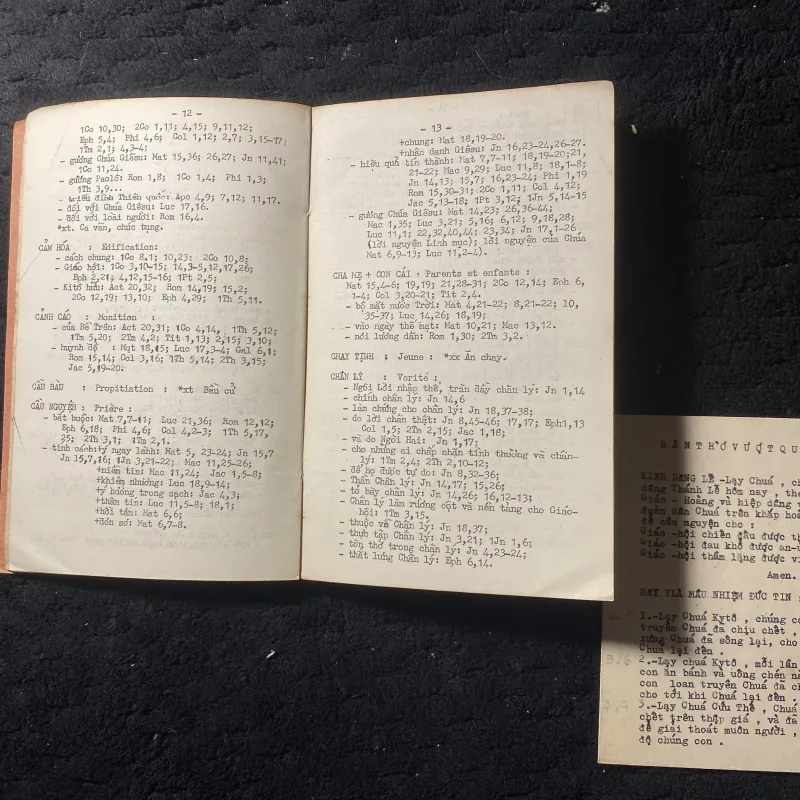 - 12 -
1Co 10,30; 2Co 1,11; 4,15; 9,11,12;
Eph 5,4; Phi 4,6; Col 1,12; 2,7; 3,15-17;
1Tm 2,1; 4,3-4;
- gương Chúa Giêsu: Mat 15,36; 26,27; Jn 11,41;
1Co 11,24.
- gương Paolô: Rom 1,8; 1Co 1,4; Phi 1,3;
1Th 3,9...
- triều đình Thiên quốc: Apc 4,9; 7,12; 11,17.
- đối với Chúa Giêsu: Luc 17,16.
- đối với loài người: Rom 16,4.
*xt. Ca vãn, chúc tụng.
CẢM HÓA : Edification:
- cách chung: 1Co 8,1; 10,23; 2Co 10,8;
- Giáo hội: 1Co 3,10-15; 14,3-5,12,17,26;
Eph 2,21; 4,12,15-16; 1Pt 2,5;
- Kitô hữu: Act 20,32; Rom 14,19; 15,2;
2Co 12,19; 13,10; Eph 4,29; 1Th 5,11.
CẢNH CÁO : Monition :
- của Bề Trên: Act 20,31; 1Co 4,14, 1Th 5,12;
1Tm 5,20; 2Tm 4,2; Tit 1,13; 2,15; 3,10;
- huynh đệ : Mat 18,15; Luc 17,3-4; Gal 6,1;
Rom 15,14; Col 3,16; 1Th 5,14; 2Th 3,15;
Jac 5,19-20.
CẦU BẦU : Propitiation : *xt Bầu cử
CẦU NGUYỆN : Prière :
- bắt buộc: Mat 7,7-11; Luc 21,36; Rom 12,12;
Eph 6,18; Phi 4,6; Col 4,2-3; 1Th 5,17,
25; 2Th 3,1; 1Tm 2,1.
- tính cách:+ý ngay lành: Mat 5, 23-24; Jn 15,7
Jn 15,7,16; 1Jn 3,21-22; Mac 11,25-26;
+niềm tin: Mac 11,24; Jac 1,5-8;
+khiêm nhường: Luc 18,9-14;
+ý hướng trong sạch: Jac 4,3;
+thân tín: Luc 11,5-8; 18,1;
+hồi tâm: Mat 6,6;
+đơn sơ: Mat 6,7-8.
- 13 -
+chung: Mat 18,19-20.
+nhân danh Giêsu: Jn 16,23-24,26-27.
- hiệu quả tín thành: Mat 7,7-11; 18,19-20;21,
21-22; Mac 9,29; Luc 11,8; 18,1-8;
Jn 14,13; 15,7; 16,23-24; Phi 1,19
Rom 15,30-31; 2Co 1,11; Col 4,12;
Jac 5,13-18; 1Pt 3,12; 1Jn 5,14-15
- gương Chúa Giêsu: Mat 14,23; 26,36-44;
Mac 1,35; Luc 3,21; 5,16; 6,12; 9,18,28;
Luc 11,1; 22,32,40,44; 23,34; Jn 17,1-26
(lời nguyện Linh mục); lời nguyện của Chúa
Mat 6,9-13; Luc 11,2-4).
CHA MẸ + CON CÁI : Parents et enfants :
Mat 15,4-6; 19,19; 21,28-31; 2Co 12,14; Eph 6,
1-4; Col 3,20-21; Tit 2,4.
- bỏ mất nước Trời: Mat 4,21-22; 8,21-22; 10,
35-37; Luc 14,26; 18,19;
- vào ngày thế mạt: Mat 10,21; Mac 13,12.
- nói lương dân: Rom 1,30; 2Tm 3,2.
CHAY TỊNH : Jeune : *xx Ăn chay.
CHÂN LÝ : Verité :
- Ngôi Lời nhập thể, tràn đầy chân lý: Jn 1,14
- chính chân lý: Jn 14,6
- làm chứng cho chân lý: Jn 18,37-38;
- do lời chân thật: Jn 8,45-46; 17,17; Eph1,13
Col 1,5; 2Tm 2,15; Jac 1,18;
- và do Ngôi Hai: Jn 1,17;
- cho những ai chấp nhận tình thương và chân-
lý: 1Tm 2,4; 2Th 2,10-12;
- để họ được tự do: Jn 8,32-36;
- Thần Chân lý: Jn 14,17; 15,26;
- tỏ bày chân lý: Jn 14,26; 16,12-13;
- Chân lý làm rường cột và nền tảng cho Giáo-
hội: 1Tm 3,15.
- thuộc về Chân lý: Jn 18,37;
- thực tập Chân lý: Jn 3,21; 1Jn 1,6;
- tôn thờ trong chân lý: Jn 4,23-24;
- thắt lưng Chân lý: Eph 6,14.
BÀN THỜ VƯỢT QU
KINH DÂNG LỄ -Lạy Chúa , ch
dâng Thánh Lễ hôm nay , the
Giáo - Hoàng và hiệp dâng v
đoàn dân Chúa trên khắp hoà
để cầu nguyện cho :
Giáo -hội chiến đấu được th
Giáo -hội đau khổ được an-ủ
Giáo -hội thầm lặng được vi
Amen.
ĐÂY LÀ MẦU NHIỆM ĐỨC TIN :
1.-Lạy Chúa Kytô , chúng co
truyền Chúa đã chịu chết ,
xưng Chúa đã sống lại, cho
Chúa lại đến .
3.6
2.-Lạy chúa Kytô , mỗi lần
con ăn bánh và uống chén nà
con loan truyền Chúa đã ch
cho tới khi Chúa lại đến .
3.-Lạy Chúa Cứu Thế , Chúa
chết trên thập giá , và đã
để giải thoát muôn người ,
độ chúng con .